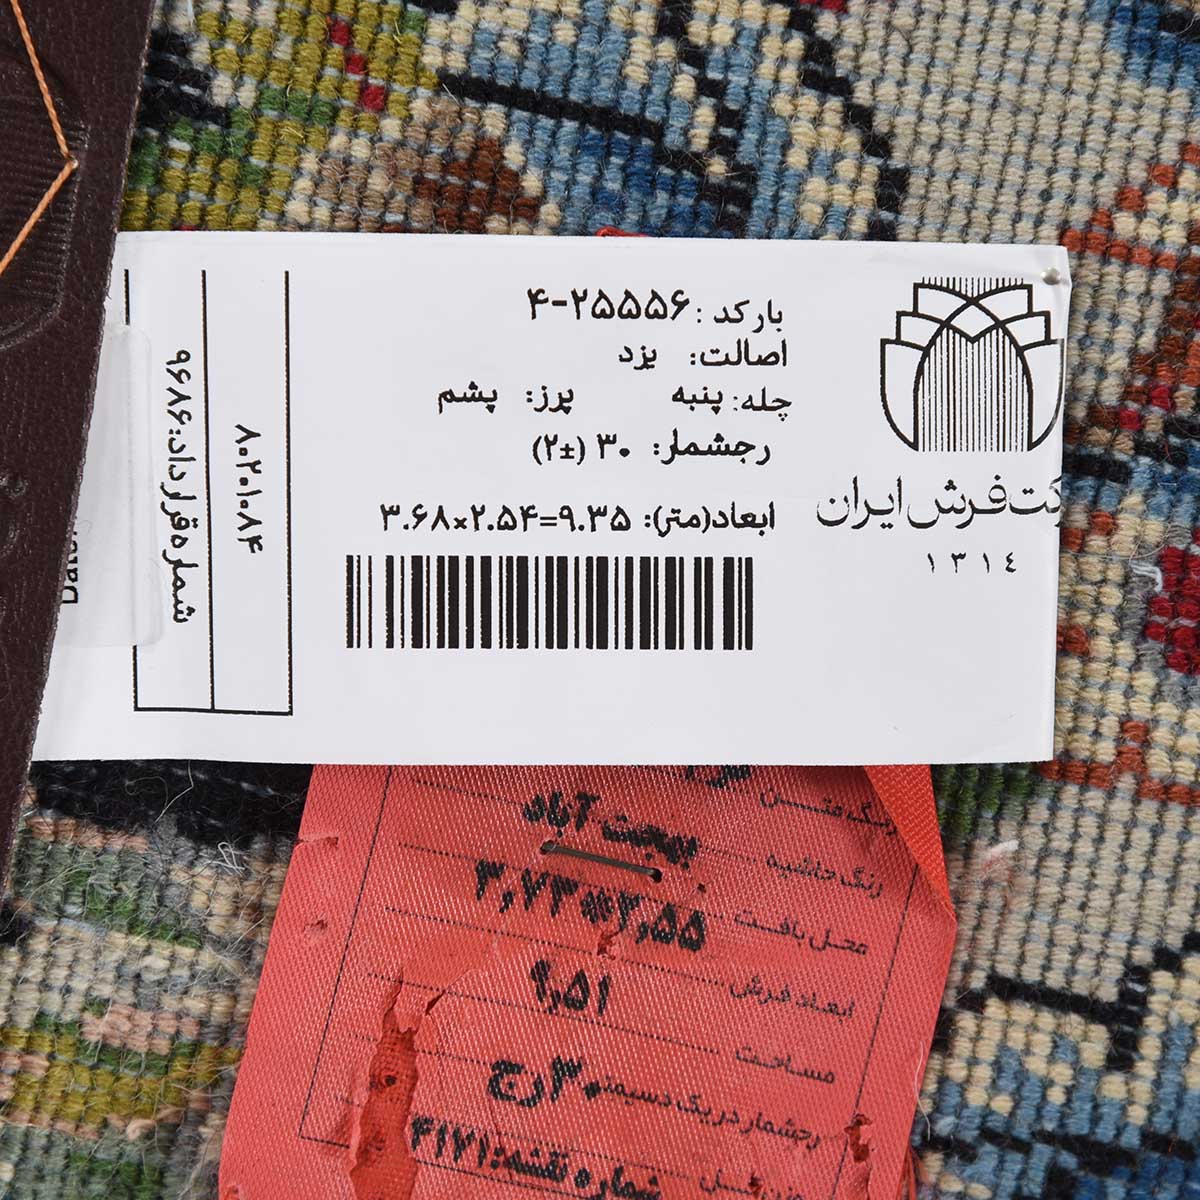 بارکد: ۴-۲۵۵۵۶
اصالت: یزد
چله: پنبه پرز: پشم
رجشمار: ۳۰ (±۲)
ابعاد(متر): ۳.۶۸×۲.۵۴=۹.۳۵
کت فرش ایران
۱۳۱٤
۸۰۲۰۱۰۸۴
شماره قرارداد: ۹۶۸۶
Date:
رنگ متن
رنگ حاشیه
بهجت آباد
محل بافت
۳,۷۳*۲,۵۵
ابعاد فرش
۹,۵۱
مساحت
رجشمار در یک دسیمتر ۳۰ رج
شماره نقشه: ۴۱۷۱